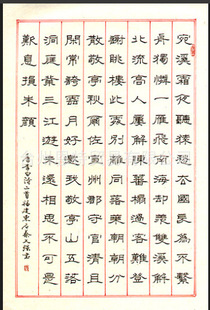 宛溪霜夜聽猿愁去國長為不繫
舟獨憐一雁飛南海却羨雙溪解
北流高人屢解陳蕃榻過客難登
謝朓樓此處別離同落葉朝朝分
散敬亭秋爾佐宣州郡守官清且
閑常誇雲月好邀我敬亭山五落
洞庭葉三江遊未還相思不可見
歎息損朱顏
唐李白詩二首福建東石蔡